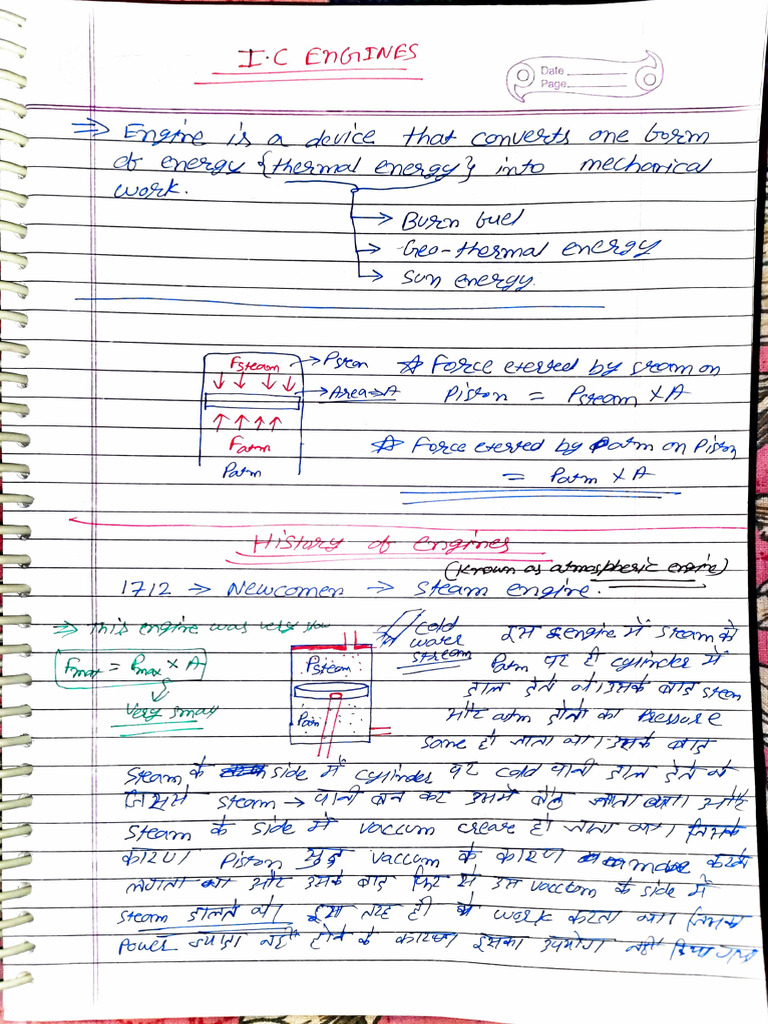 I.C ENGINES
Date
Page
⇒ Engine is a device that converts one form
of energy {thermal energy} into mechanical
work.
→ Burn fuel
→ Geo-thermal energy
→ Sun energy.
Fsteam → Psteam
→ Area → A
Fatm
Patm
☆ Force exerted by steam on
Piston = Psteam × A
☆ Force exerted by Patm on Piston
= Patm × A
History of engines
(Known as atmospheric engine)
1712 → Newcomen → Steam engine.
⇒ This engine was very slow
Fmax = Pmax × A
Very small
Psteam
Patm
cold
water
stream
इस engine में steam को
Patm पर ही cylinder में
डाल देते थे। उसके बाद steam
और atm दोनो का Pressure
same हो जाता था। उसके बाद
steam के side में cylinder पर cold पानी डाल देते थे
जिससे steam → पानी बन कर उसमें बैठ जाता था। और
steam के side में vaccum create हो जाता था। जिसके
कारण Piston vaccum के कारण move करने
लगता था और उसके बाद फिर से उस vaccum के side में
steam डालते थे। इस तरह ही work करता था। जिसका
Power ज्यादा नहीं होने के कारण इसका उपयोग नहीं किया गया